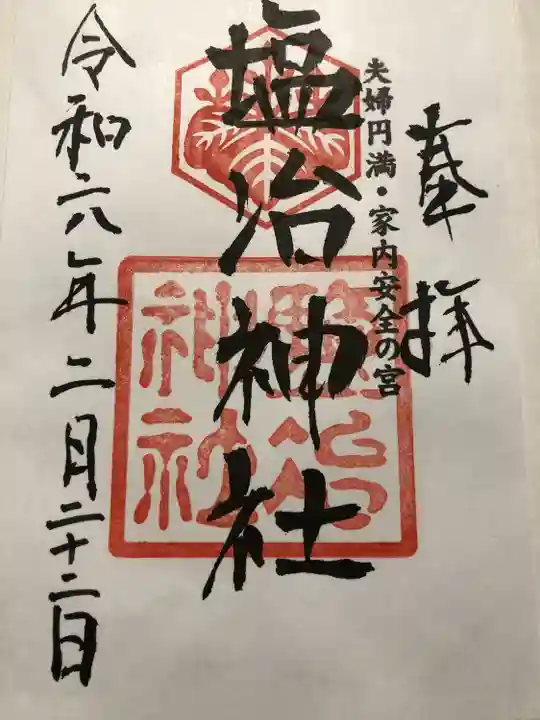 奉拝
夫婦円満・家内安全の宮
塩冶神社
令和六年二月二十二日